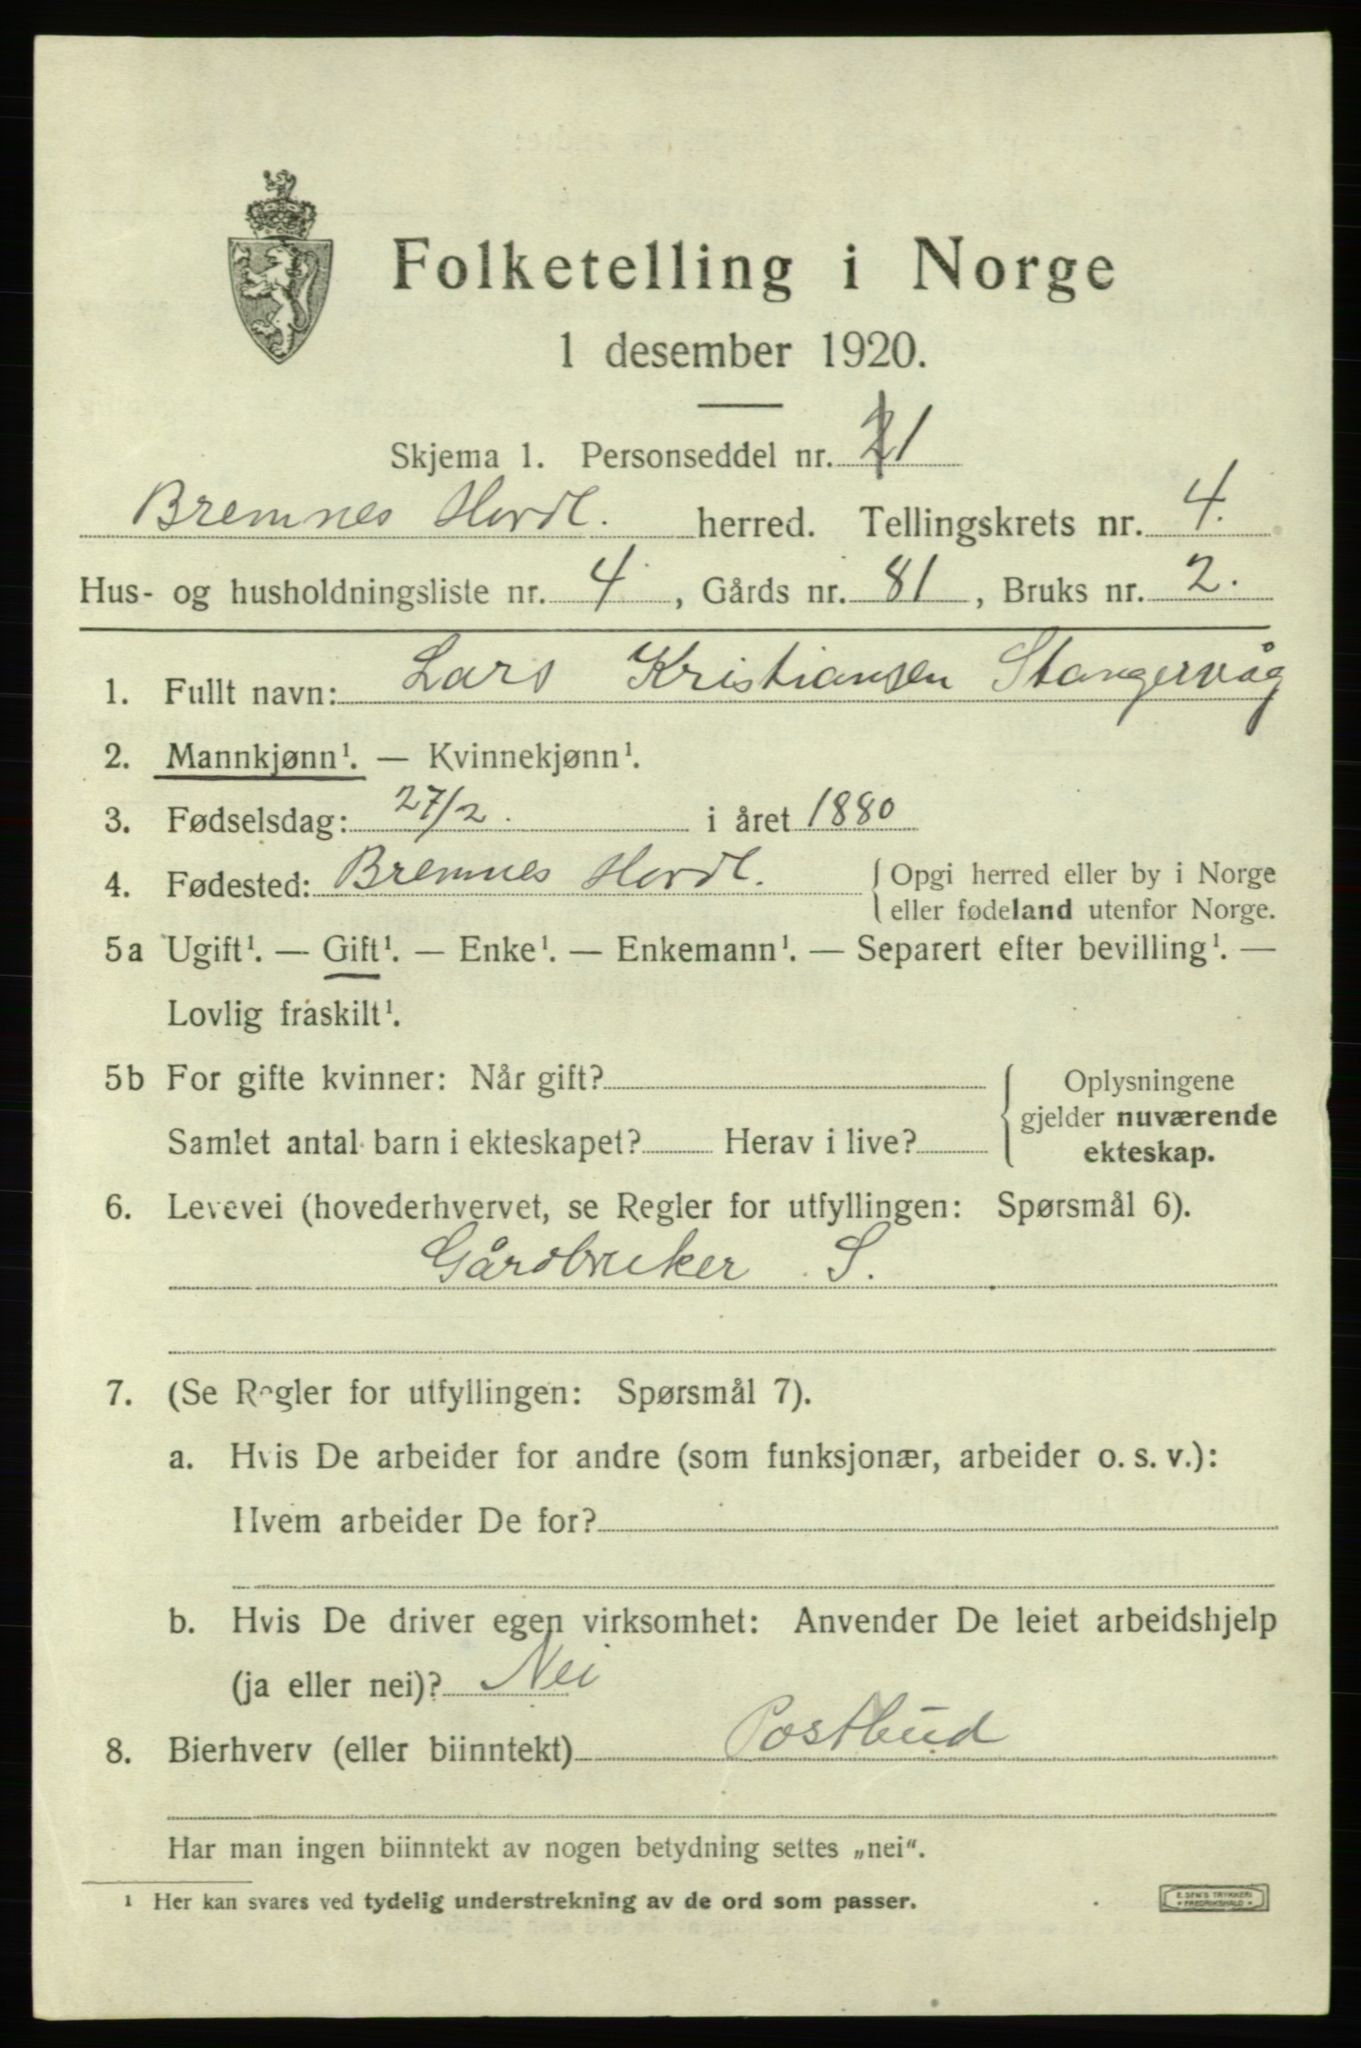 Folketelling i Norge
1 desember 1920.
Skjema 1. Personseddel nr. 1
Bremnes Hordl. herred. Tellingskrets nr. 4.
Hus- og husholdningsliste nr. 4, Gårds nr. 81, Bruks nr. 2.
1. Fullt navn: Lars Kristiansen Stangervåg
2. Mannkjønn¹. — Kvinnekjønn¹.
3. Fødselsdag: 27/2. i året 1880
4. Fødested: Bremnes Hordl. { Opgi herred eller by i Norge
eller fødeland utenfor Norge.
5a Ugift¹. — Gift¹. — Enke¹. — Enkemann¹. — Separert efter bevilling¹. —
Lovlig fraskilt¹.
5b For gifte kvinner: Når gift? { Oplysningene
gjelder nuværende
Samlet antal barn i ekteskapet? Herav i live?
ekteskap.
6. Levevei (hovederhvervet, se Regler for utfyllingen: Spørsmål 6).
Gårdbruker S.
7. (Se Regler for utfyllingen: Spørsmål 7).
a. Hvis De arbeider for andre (som funksjonær, arbeider o. s. v.):
Hvem arbeider De for?
b. Hvis De driver egen virksomhet: Anvender De leiet arbeidshjelp
(ja eller nei)? Nei
8. Bierhverv (eller biinntekt) Postbud
Har man ingen biinntekt av nogen betydning settes „nei“.
¹ Her kan svares ved tydelig understrekning av de ord som passer.
E. SEM'S TRYKKERI
FREDRIKSHALD